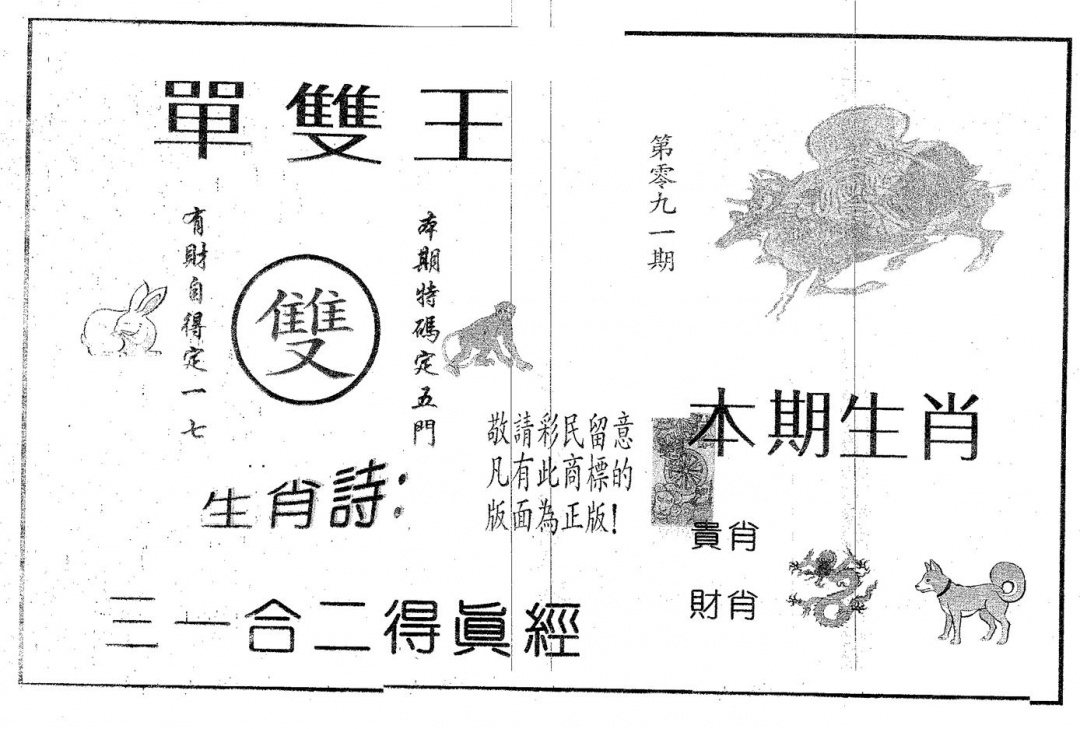 單雙王
第零九一期
本期特碼定五門
雙
有財自得定一七
敬請彩民留意
凡有此商標的
版面為正版!
本期生肖
生肖詩:
貴肖
財肖
三一合二得眞經